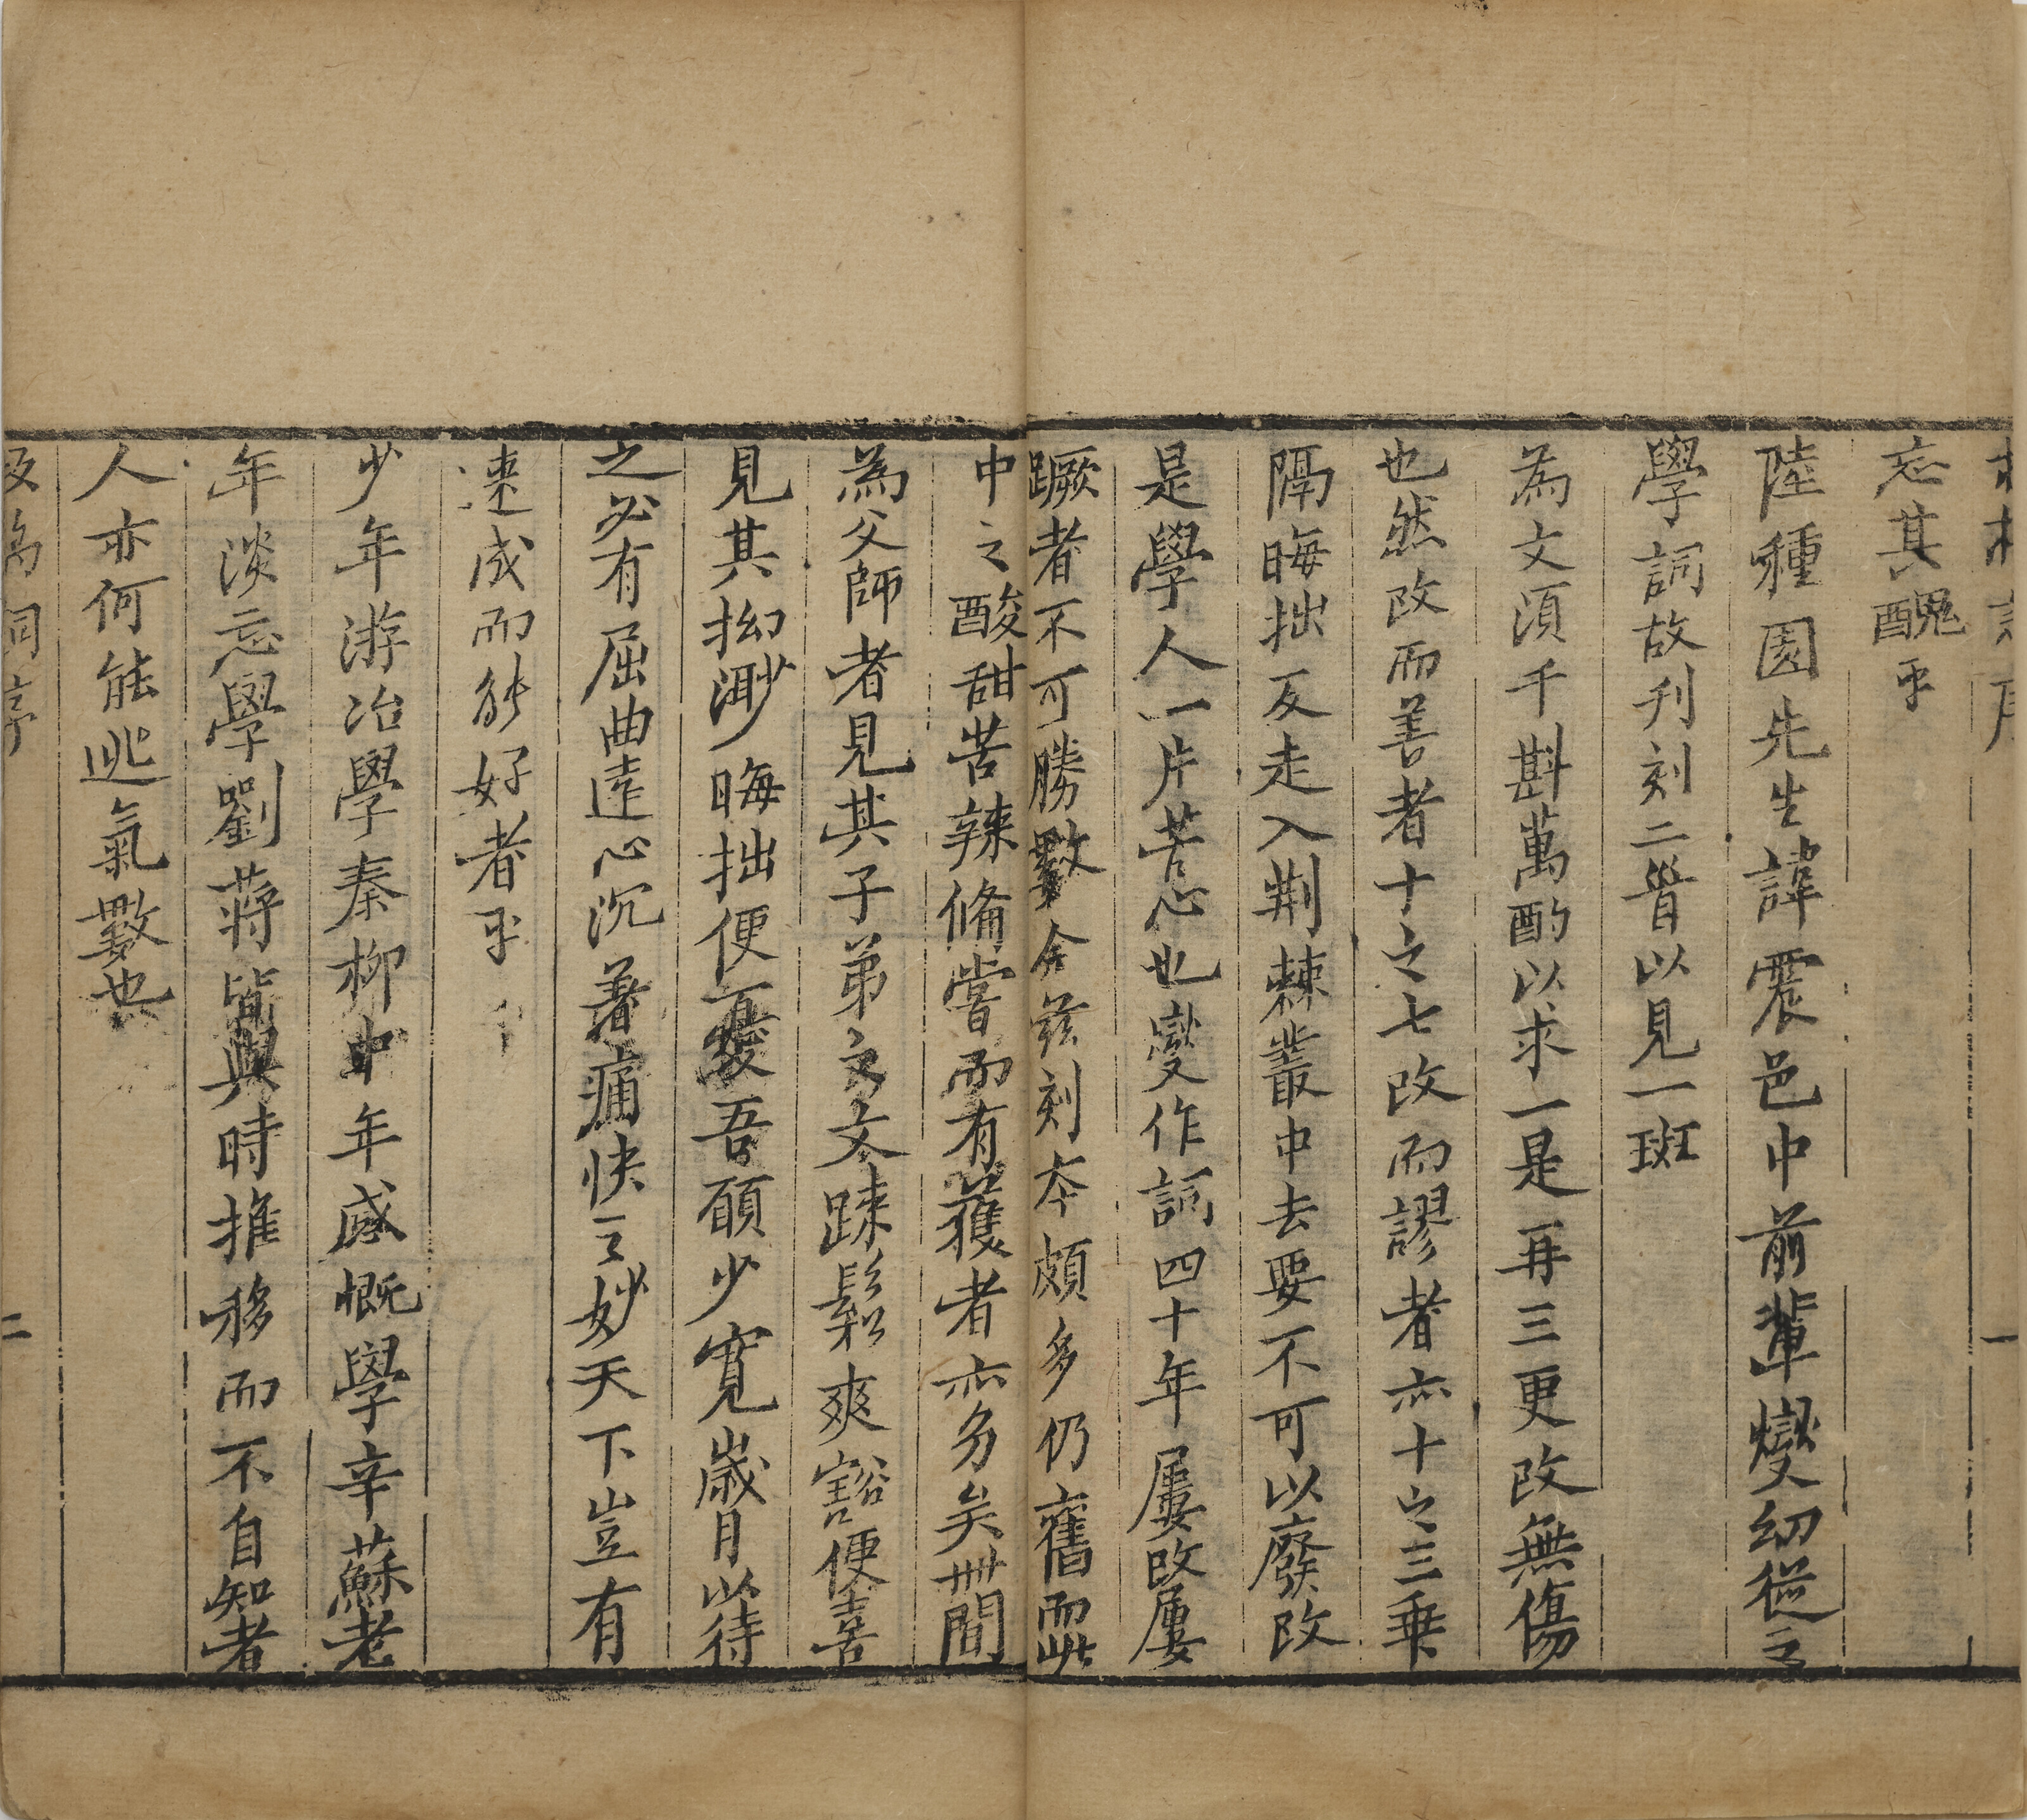 忘其醜乎
陸種園先生諱震邑中前輩燮幼從之
學詞故刋刻二首以見一斑
為文須千斟萬酌以求一是再三更改無傷
也然改而善者十之七改而謬者亦十之三乗
隔晦拙反走入荆棘叢中去要不可以廢改
是學人一片苦心也燮作詞四十年屢改屢
蹶者不可勝數今茲刻本頗多仍舊而此
中之酸甜苦辣備嘗而有獲者亦多矣世間
為父師者見其子弟之文踈鬆爽豁便喜
見其拗渺晦拙便憂吾願少寬歲月以待
之必有屈曲逹心沉著痛快之妙天下豈有
速成而能好者乎
少年游冶學秦柳中年感慨學辛蘇老
年淡忘學劉蔣皆與時推移而不自知者
人亦何能逃氣數也
二
一